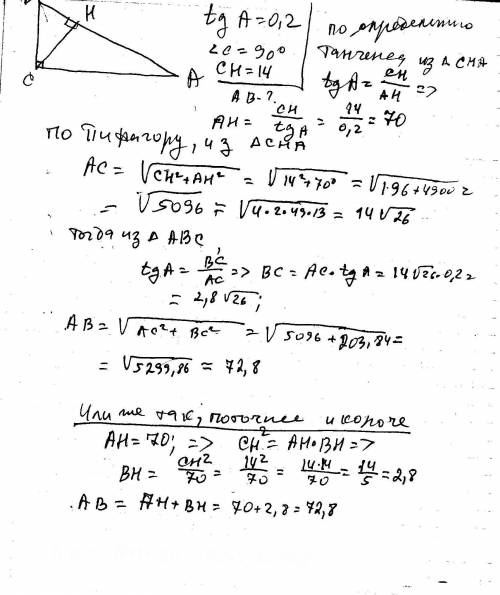 H
C
A
tg A = 0,2
∠C = 90°
CH = 14
AB - ?
по определению
тангенса из △ CHA
tg A = CH/AH =>
AH = CH/tg A = 14/0,2 = 70
по Пифагору, из △CHA
AC = √(CH²+AH²) = √(14²+70²) = √(196+4900) =
= √5096 = √(4·2·49·13) = 14√26
тогда из △ ABC,
tg A = BC/AC => BC = AC·tg A = 14√26·0,2 =
= 2,8√26;
AB = √(AC²+BC²) = √(5096+203,84) =
= √5299,86 ≈ 72,8
Или же так, поточнее и короче
AH = 70; => CH² = AH·BH =>
BH = CH²/70 = 14²/70 = 14·14/70 = 14/5 = 2,8
AB = AH + BH = 70+2,8 = 72,8